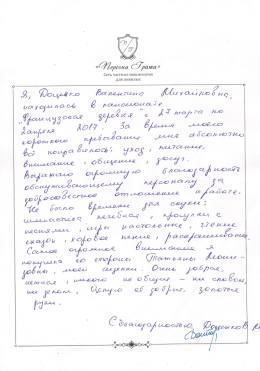 «Персона Грата»
Сеть частных пансионатов
для пожилых
Я, Доценко Валентина Михайловна,
находилась в пансионате
"Французская деревня" с 27 марта по
2 апреля 2017. За время моего
короткого пребывания мне абсолютно
всё понравилось: уход, питание,
внимание, общение, досуг.
Выражаю огромную благодарность
обслуживающему персоналу за
добросовестное отношение к работе.
Не было времени для скуки:
гимнастика лечебная, прогулки с
песнями, игры настольные, чтение
сказок, хоровое пение, раскрашивание.
Самое огромное внимание я
получила со стороны Татьяны
моей Очень добрая,
никого не обидит - ни словом,
ни делом. Целую её добрые, золотые
руки.
С благодарностью Доценко В. М.